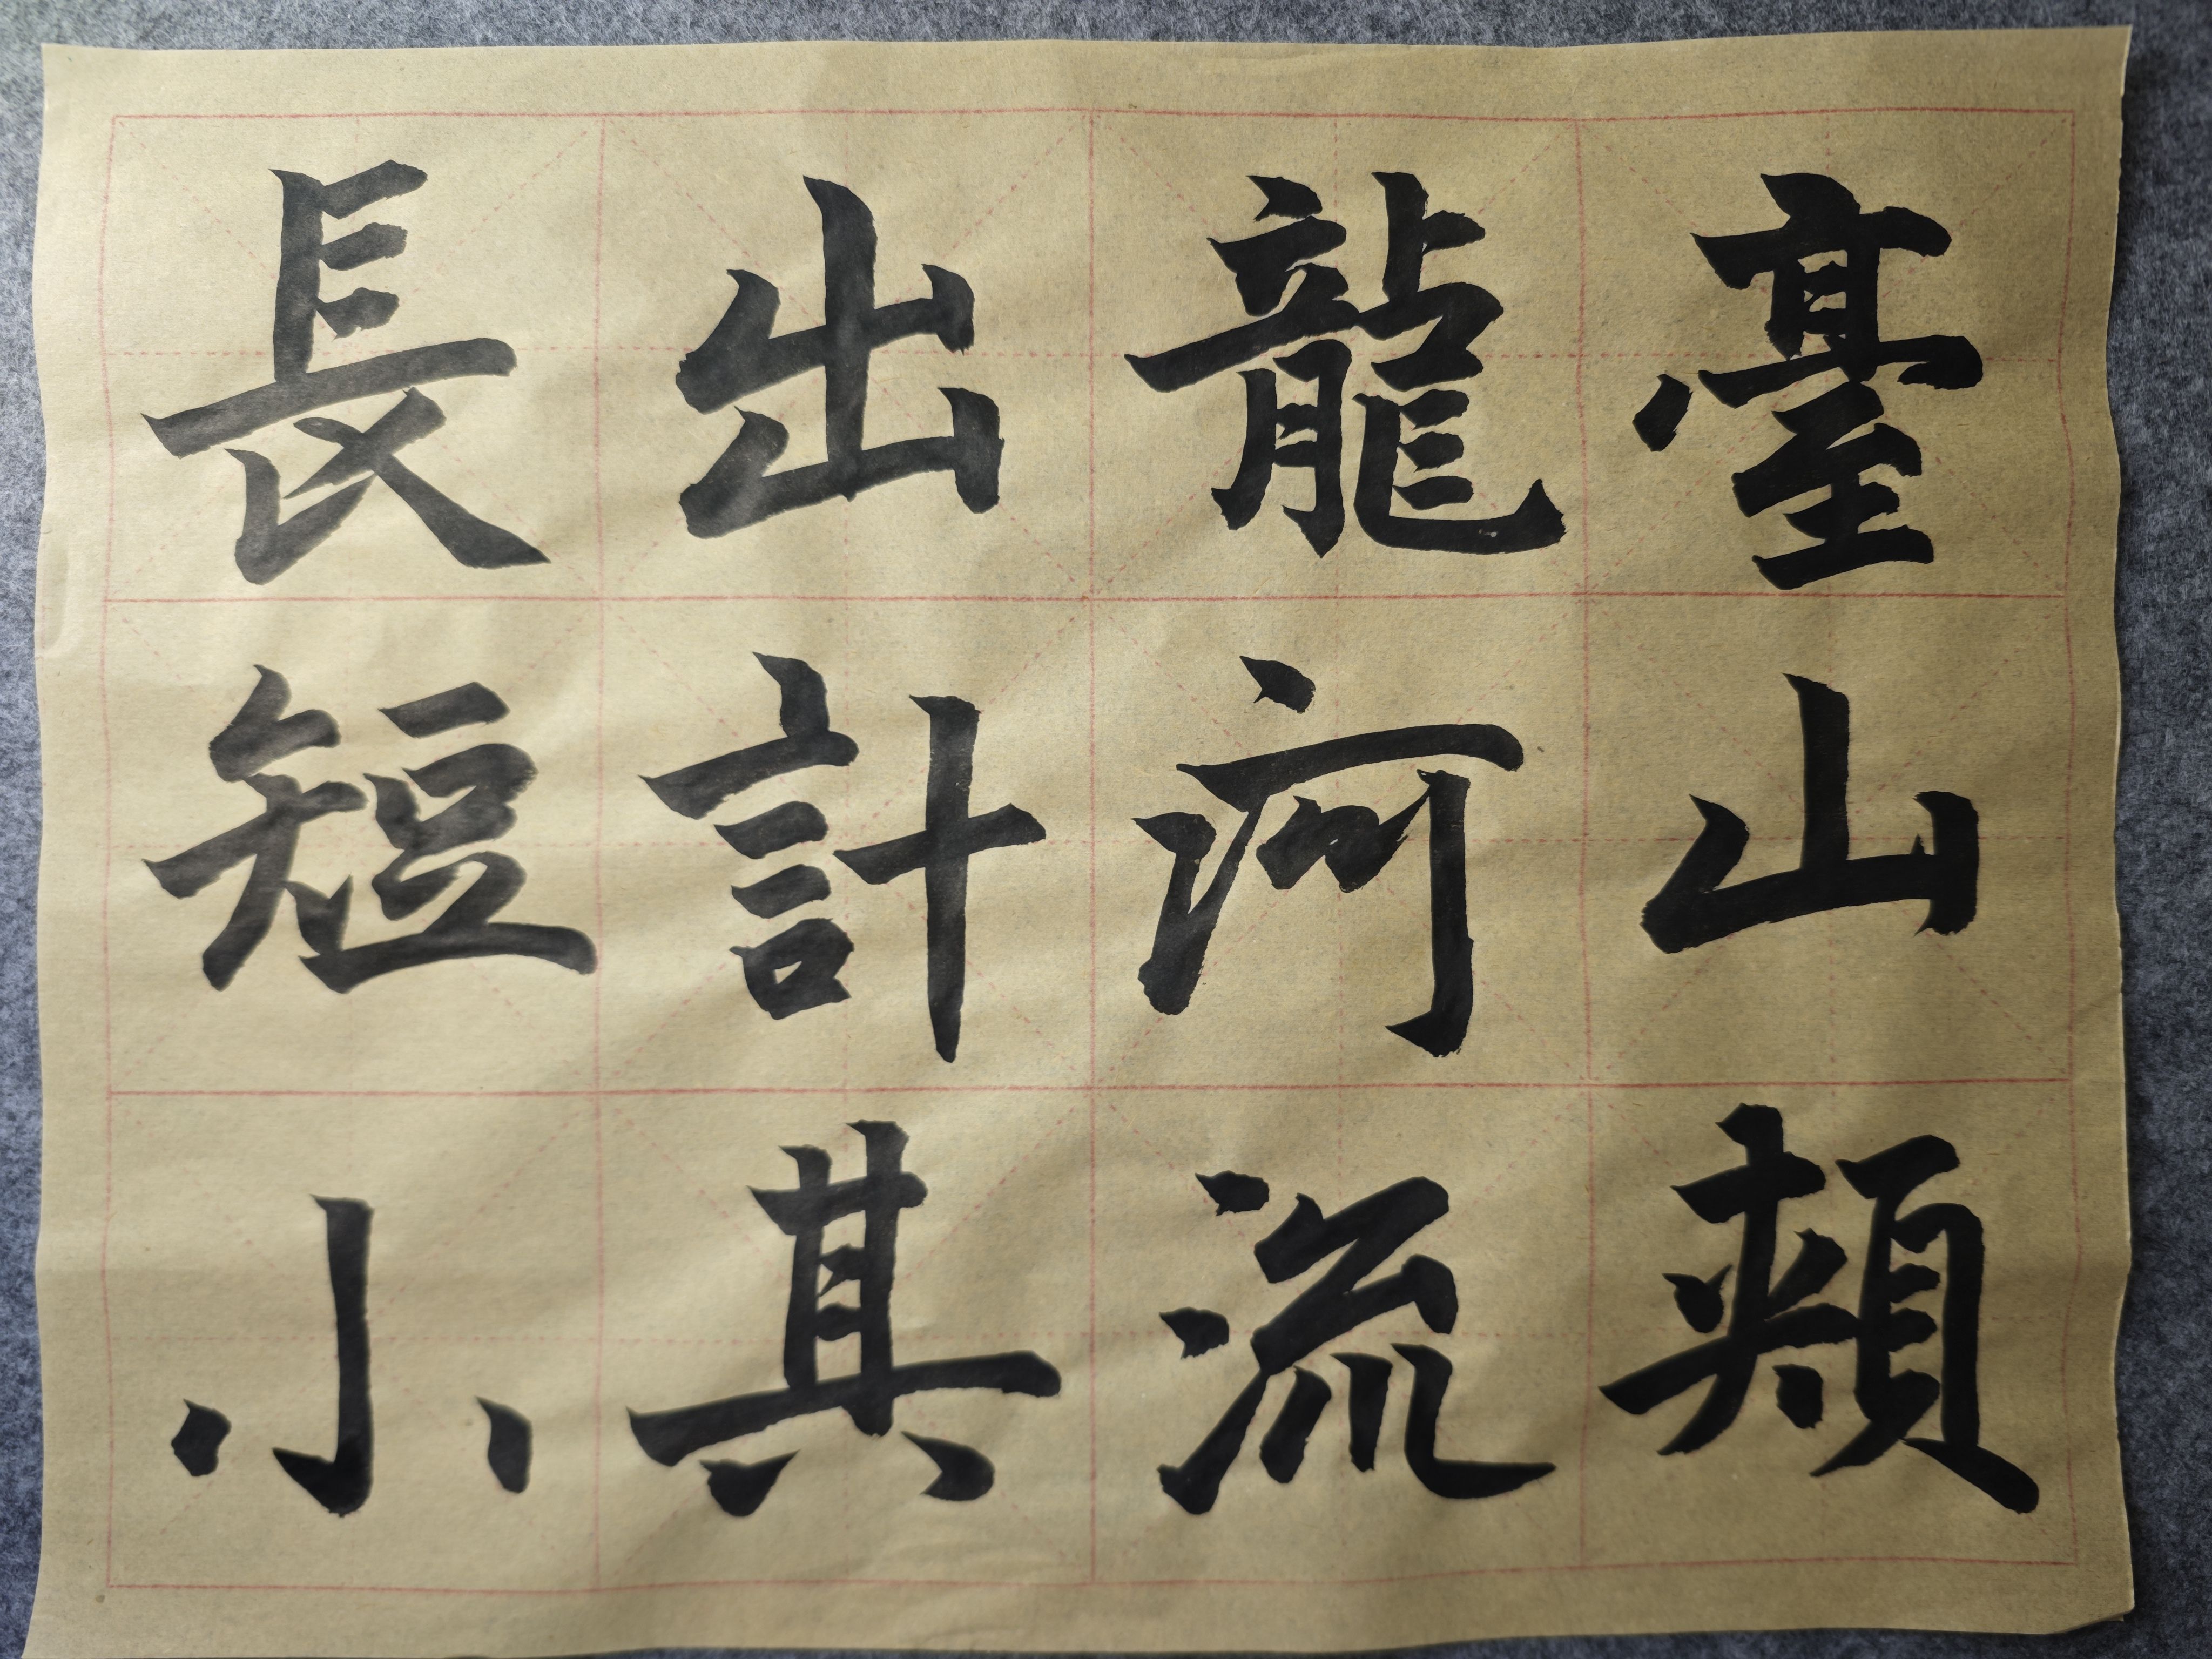 臺山頰
龍疴流
出計其
長短小